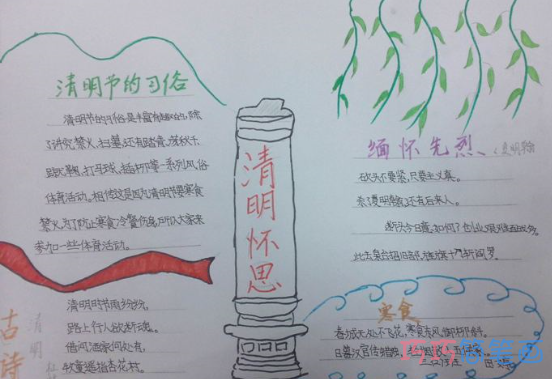 清明节的习俗
清明节的习俗是丰富有趣的,除
了讲究禁火、扫墓,还有踏青、荡秋千、
蹴鞠、打马球、插柳等一系列风俗
体育活动。相传这是因为清明节要寒食
禁火,为了防止寒食冷餐伤身,所以大家来
参加一些体育活动。
古诗
清明
清明时节雨纷纷,
路上行人欲断魂。
借问酒家何处有,
牧童遥指杏花村。
清明怀思
缅怀先烈
砍头不要紧,只要主义真。
杀了夏明翰,还有后来人。
断头今日意如何?创业艰难百战多。
此去泉台招旧部,旌旗十万斩阎罗。
寒食
春城无处不飞花,寒食东风御柳斜。
日暮汉宫传蜡烛,
巧巧简笔画